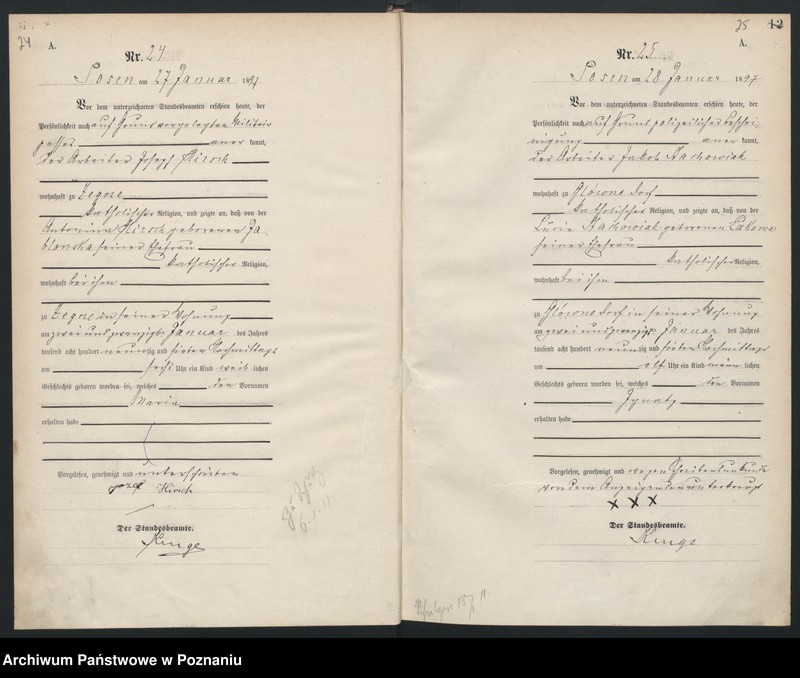 24
A.
Nr. 24
Posen am 27 Januar 1897
Vor dem unterzeichneten Standesbeamten erschien heute, der
Persönlichkeit nach auf Grund vorgelegten Militair
passes anerkannt,
der Arbeiter Joseph Hirsch
wohnhaft zu Zegrze
katholischer Religion, und zeigte an, daß von der
Antonina Hirsch geborenen Ja-
blonska seiner Ehefrau
katholischer Religion,
wohnhaft bei ihm
zu Zegrze in seiner Wohnung
am zwei und zwanzigsten Januar des Jahres
tausend acht hundert neunzig und sieben Nachmittags
um sechs Uhr ein Kind weiblichen
Geschlechts geboren worden sei, welches den Vornamen
Maria
erhalten habe
Vorgelesen, genehmigt und unterschrieben
Josef Hirsch
Der Standesbeamte.
25
12
A.
Nr. 25
Posen am 28 Januar 1897
Vor dem unterzeichneten Standesbeamten erschien heute, der
Persönlichkeit nach auf Grund polizeilicher Beschei-
nigung anerkannt,
der Arbeiter Jakob Stachowiak
wohnhaft zu Glówno dorf
katholischer Religion, und zeigte an, daß von der
Lucie Stachowiak geborenen
seiner Ehefrau
katholischer Religion,
wohnhaft bei ihm
zu Glówno dorf in seiner Wohnung
am zwei und zwanzigsten Januar des Jahres
tausend acht hundert neunzig und sieben Nachmittags
um elf Uhr ein Kind männlichen
Geschlechts geboren worden sei, welches den Vornamen
Ignatz
erhalten habe
Vorgelesen, genehmigt und wegen Schreibensunkunde
von dem Anzeigenden unterkreuzt
X X X
Der Standesbeamte.
Archiwum Państwowe w Poznaniu